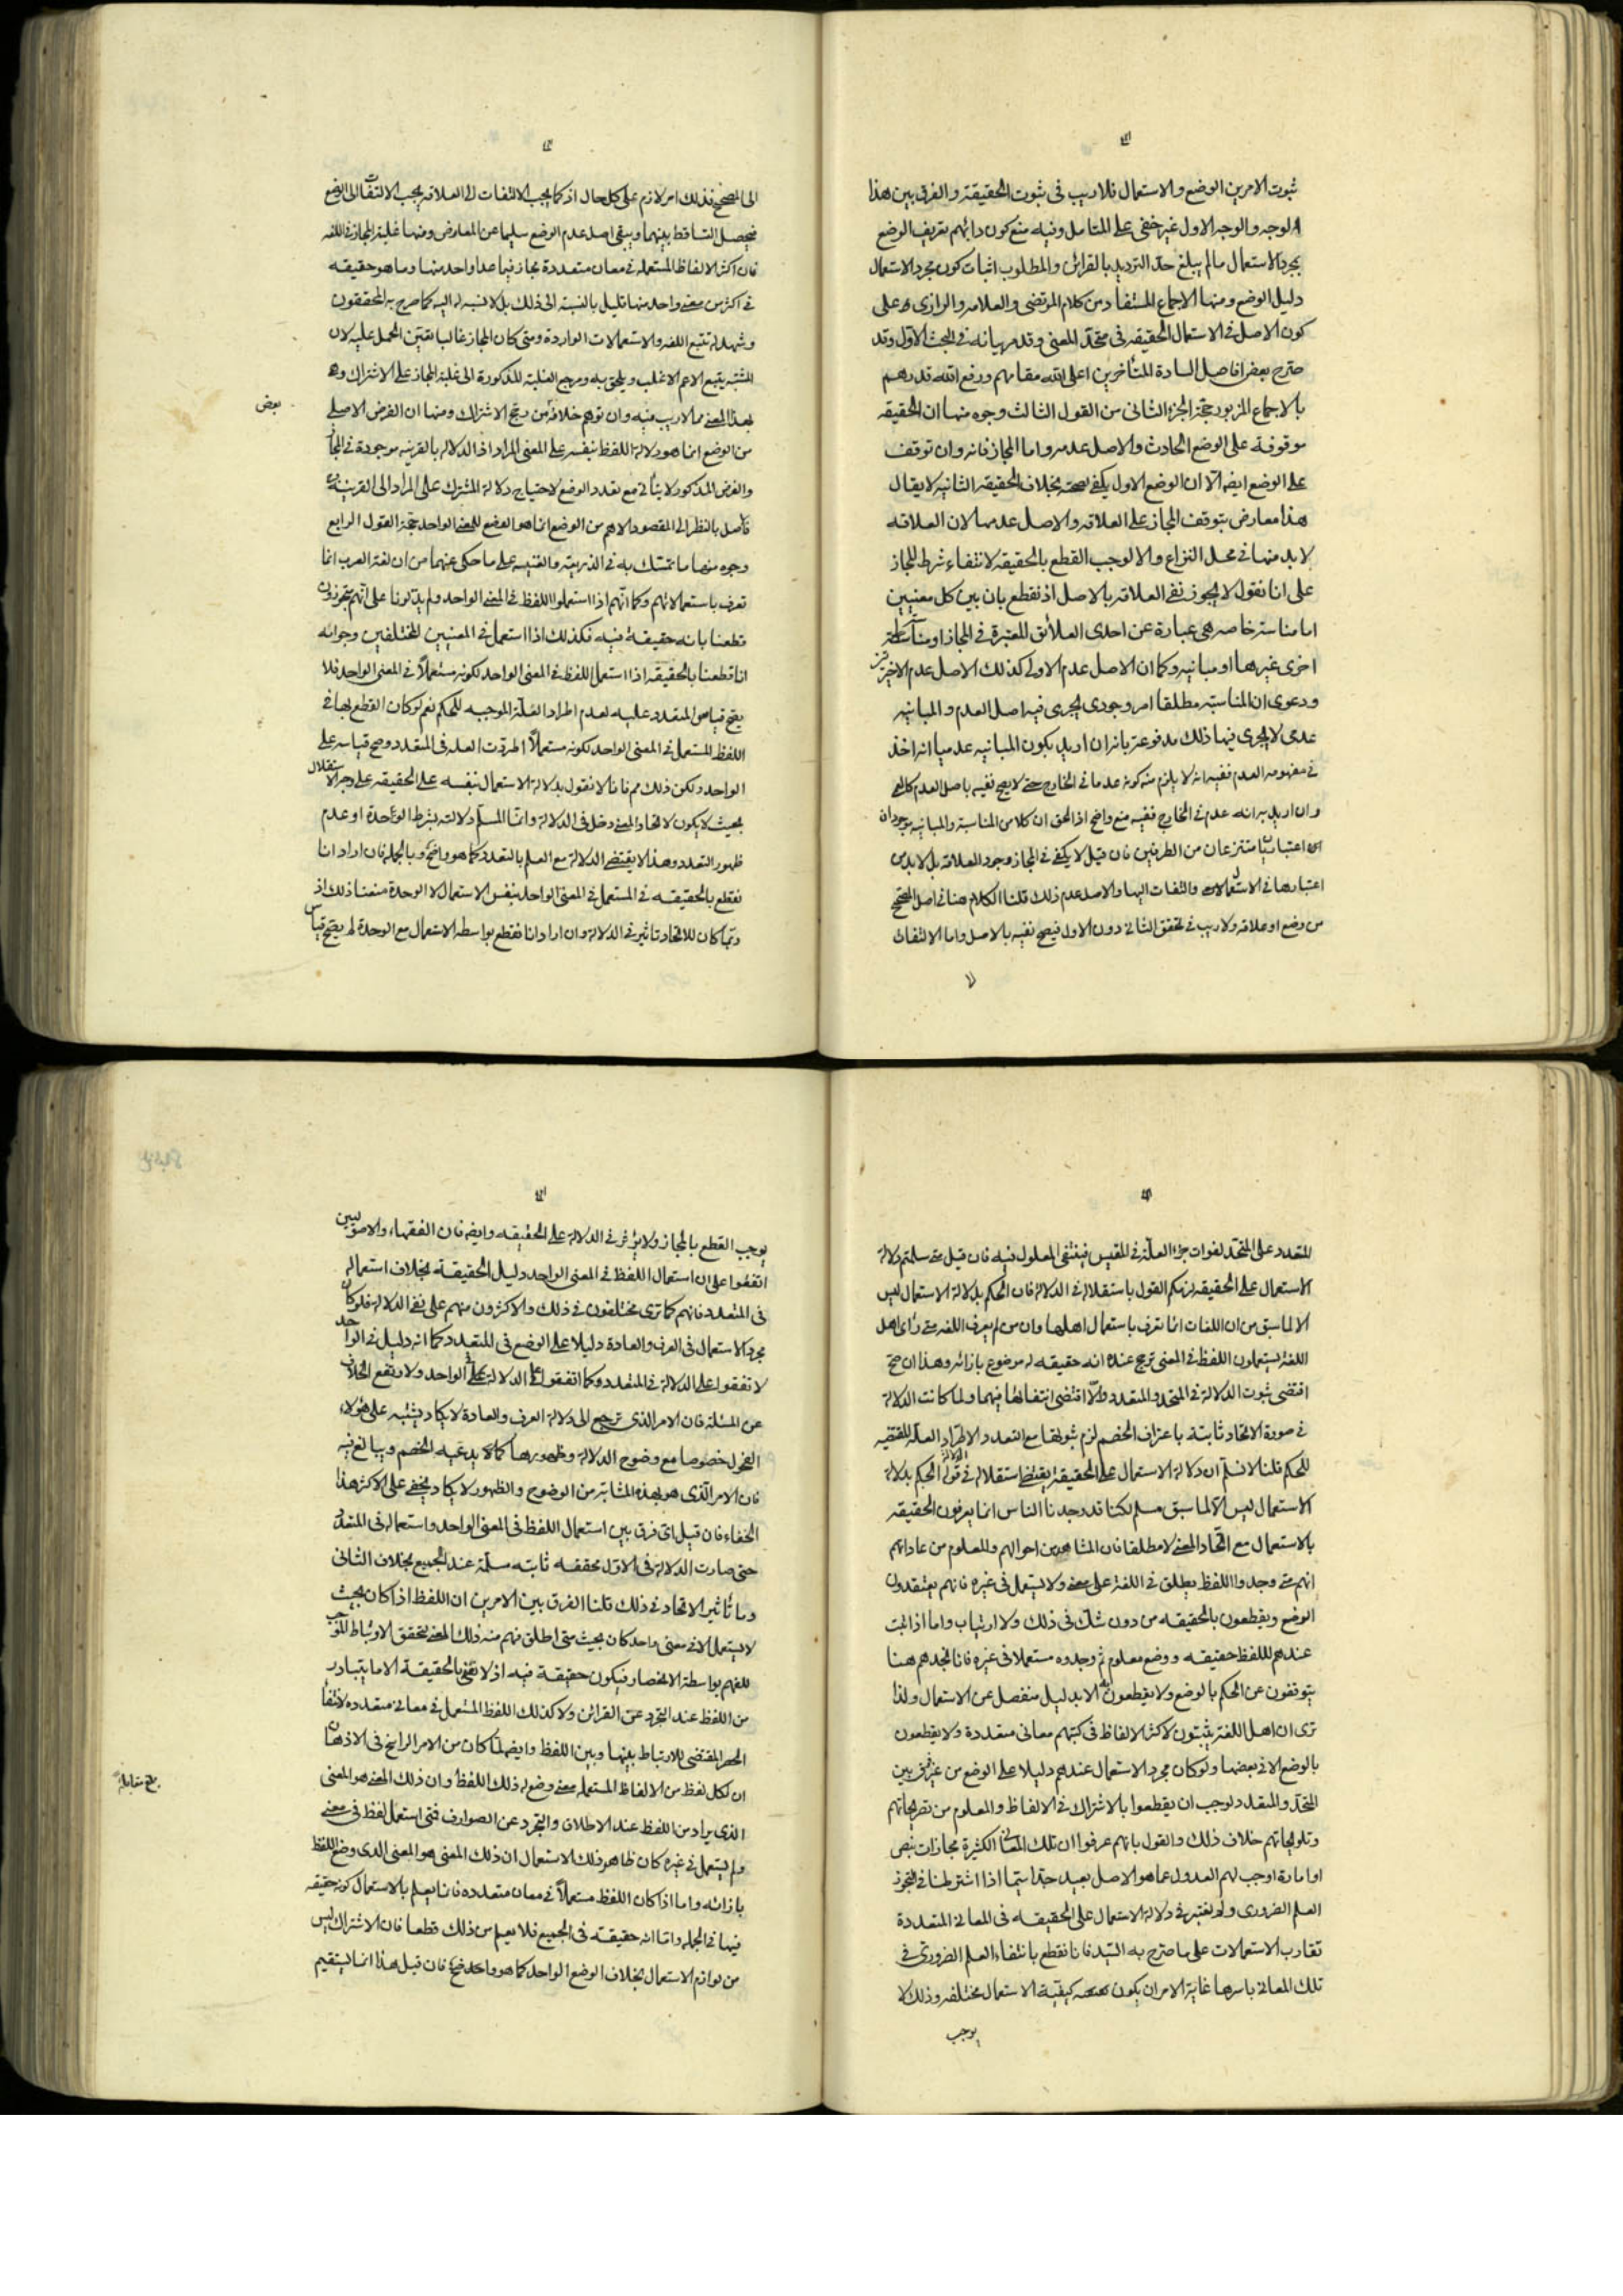 ثبوت الامرين الوضع والاستعمال فلا ريب فى ثبوت الحقيقة والفرق بين هذا
الوجه والوجه الاول غير خفى على المتامل وفيه منع كون دابهم تعريف الوضع
بمجرد الاستعمال مالم يبلغ حد الترديد بالقرائن والمطلوب اثبات كون مجرد الاستعمال
دليل الوضع ومنها الاجماع المستفاد من كلام المرتضى والعلامه والرازى على
كون الاصل فى الاستعمال الحقيقه فى متحد المعنى وقد مر بيانه فى البحث الاول وقد
صرح بعض افاضل السادة المتأخرين اعلى الله مقامهم ورفع الله قدرهم
بالاجماع المزبور حجة الجزء الثانى من القول الثالث وجوه منها ان الحقيقه
موقوفة على الوضع الحادث والاصل عدمه واما المجاز فانه وان توقف
على الوضع ايضا الا ان الوضع الاول يكفى صحته بخلاف الحقيقه الثانيه لا يقال
هذا معارض بتوقف المجاز على العلاقه والاصل عدمها لان العلاقه
لا بد منها فى محل النزاع والا لوجب القطع بالحقيقة لانتفاء شرط المجاز
على انا نقول لا يجوز نفى العلاقه بالاصل اذ نقطع بان بين كل معنيين
اما مناسبة خاصه هى عبارة عن احدى العلائق المعتبرة فى المجاز او مناسبة
اخرى غيرها او مباينه وكما ان الاصل عدم الاولى كذلك الاصل عدم الاخيرتين
ودعوى ان المناسبة مطلقا امر وجودى يجرى فيه اصل العدم والمباينه
عدمى لا يجرى فيها ذلك مدفوعة بانه ان اريد بكون المباينه عدميا انه اخذ
فى مفهومه العدم ففيه انه لا يلزم منه كونه عدما فى الخارج حتى لا يصح نفيه باصل العدم كالعمى
وان اريد به انه عدم فى الخارج ففيه منع واضح اذ الحق ان كلا من المناسبة والمباينه موجودان
اعتباريا منتزعان من الطرفين فان قيل لا يكفى فى المجاز وجود العلاقه بل لا بد من
اعتبارها فى الاستعمالات والتفات اليها والاصل عدم ذلك قلنا الكلام هنا فى اصل المصحح
من وضع او علاقه ولا ريب فى تحقق الثانى دون الاول فيصح نفيه بالاصل واما الالتفات
الى المصحح فذلك امر لازم على كل حال اذ كما يجب الالتفات الى العلاقه يجب الالتفات الى الوضع
فيحصل التساقط بينهما ويبقى اصل عدم الوضع سليما عن المعارض ومنها غلبة المجاز فى اللغه
فان اكثر الالفاظ المستعمله فى معان متعددة مجاز فيما عدا واحد منها وما هو حقيقه
فى اكثر من معنى واحد منها قليل بالنسبة الى ذلك بل لا نسبه له اليه كما صرح به المحققون
وشهد له تتبع اللغه والاستعمالات الواردة ومتى كان المجاز غالبا تعين الحمل عليه لان
المشتبه يتبع الاعم الاغلب ويلحق به ومرجع الغلبة المذكورة الى غلبة المجاز على الاشتراك
بهذا المعنى مما لا ريب فيه وان توهم خلافه من يرجح الاشتراك ومنها ان الغرض الاصلى
بعض
من الوضع انما هو دلالة اللفظ بنفسه على المعنى المراد اذ الدلاله بالقرينه موجودة فى المجاز
والغرض المذكور لا يتأتى مع تعدد الوضع لاحتياج دلالة المشترك على المراد الى القرينة
فالاصل بالنظر الى المقصود الاهم من الوضع انما هو الوضع للمعنى الواحد حجة القول الرابع
وجوه منها ما تمسك به فى الذريعة والغنيه على ما حكى عنهما من ان لغة العرب انما
تعرف باستعمالاتهم وكما انهم اذا استعملوا اللفظ فى المعنى الواحد ولم يدلونا على انهم متجوزون
قطعنا بانه حقيقة فيه فكذلك اذا استعمل فى المعنيين المختلفين وجوابه
انا قطعنا بالحقيقه اذا استعمل اللفظ فى المعنى الواحد لكونه مستعملا فى المعنى الواحد فلا
يصح قياس المتعدد عليه لعدم اطراد العلة الموجبه للحكم نعم لو كان القطع بها فى
اللفظ المستعمل فى المعنى الواحد لكونه مستعملا اطردت العله فى المتعدد وصح قياسه على
الواحد ولكن ذلك مم فانا لا نقول بدلالة الاستعمال بنفسه على الحقيقه على وجه الاستقلال
بحيث لا يكون لاتحاد المعنى دخل فى الدلالة وانما المسلم دلالته بشرط الوحدة او عدم
ظهور التعدد وهذا لا يقتضى الدلالة مع العلم بالتعدد كما هو واضح وبالجمله فان اراد انا
نقطع بالحقيقه فى المستعمل فى المعنى الواحد بنفس الاستعمال لا الوحدة منعنا ذلك اذ
ربما كان للاتحاد تاثير فى الدلالة وان اراد انا نقطع بواسطه الاستعمال مع الوحدة لم يصح قياس
المتعدد على المتحد لفوات جزء العلة فى المقيس فينتفى المعلول فيه فان قيل متى سلمتم دلالة
الاستعمال على الحقيقه لزمكم القول باستقلاله فى الدلالة فان الحكم بدلالة الاستعمال ليس
الا لما سبق من ان اللغات انما تعرف باستعمال اهلها وان من لم يعرف اللغه متى راى اهل
اللغة يستعملون اللفظ فى المعنى ترجح عنده انه حقيقه له موضوع بازائه وهذا ان صح
اقتضى ثبوت الدلالة فى المتحد والمتعدد والا اقتضى انتفائها فيهما ولما كانت الدلالة
فى صورة الاتحاد ثابتة باعتراف الخصم لزم ثبوتها مع التعدد لاطراد العلة المقتضيه
للحكم قلنا لا نسلم ان دلالة الاستعمال على الحقيقة يقتضى استقلاله فى الدلالة قوله الحكم بدلالة
الاستعمال ليس الا لما سبق مسلم لكنا قد وجدنا الناس انما يعرفون الحقيقه
بالاستعمال مع اتحاد المعنى لا مطلقا فان المشاهد من احوالهم والمعلوم من عاداتهم
انهم متى وجدوا اللفظ يطلق فى اللغة على معنى ولا يستعمل فى غيره فانهم يعتقدون
الوضع ويقطعون بالحقيقه من دون شك فى ذلك ولا ارتياب واما اذا ثبت
عندهم للفظ حقيقه ووضع معلوم ثم وجدوه مستعملا فى غيره فانا نجدهم هنا
يتوقفون عن الحكم بالوضع ولا يقطعون به الا بدليل منفصل عن الاستعمال ولذا
ترى ان اهل اللغة يثبتون لاكثر الالفاظ فى كتبهم معانى متعددة ولا يقطعون
بالوضع الا فى بعضها ولو كان مجرد الاستعمال عندهم دليلا على الوضع من غير فرق بين
المتحد والمتعدد لوجب ان يقطعوا بالاشتراك فى الالفاظ والمعلوم من تصريحاتهم
وتلويحاتهم خلاف ذلك والقول بانهم عرفوا ان تلك المعانى الكثيرة مجازات بنص
او امارة اوجب لهم العدول عما هو الاصل بعيد جدا سيما اذا اشترطنا فى التجوز
العلم الضرورى ولم نعتبر فى دلالة الاستعمال على الحقيقه فى المعانى المتعددة
تقارب الاستعمالات على ما صرح به السيد فانا نقطع بانتفاء العلم الضرورى فى
تلك المعانى باسرها غاية الامر ان يكون كيفية الاستعمال مختلفه وذلك لا
يوجب
يوجب القطع بالمجاز ولا يؤثر فى الدلالة على الحقيقه وايضا فان الفقهاء والاصوليين
اتفقوا على ان استعمال اللفظ فى المعنى الواحد دليل الحقيقة بخلاف استعماله
فى المتعدد فانهم كما ترى مختلفون فى ذلك والاكثرون منهم على نفى الدلالة فلو كان
مجرد الاستعمال فى العرف والعادة دليلا على الوضع فى المتعدد كما انه دليل فى الواحد
لاتفقوا على الدلالة فى المتعدد كما اتفقوا على الدلالة على الواحد ولارتفع الخلاف
عن المسئلة فان الامر الذى ترجع الى دلالة العرف والعادة لا يكاد يشتبه على هؤلاء
الفحول خصوصا مع وضوح الدلالة وظهورها كما يدعيه الخصم ويبالغ فيه
فان الامر الذى هو بهذه المثابة من الوضوح والظهور لا يكاد يخفى على الاكثر هذا
الخفاء فان قيل اى فرق بين استعمال اللفظ فى المعنى الواحد واستعماله فى المتعدد
حتى صارت الدلالة فى الاول محققه ثابته مسلمة عند الجميع بخلاف الثانى
وما تأثير الاتحاد فى ذلك قلنا الفرق بين الامرين ان اللفظ اذا كان بحيث
لا يستعمل الا فى معنى واحد كان بحيث متى اطلق فهم منه ذلك المعنى لتحقق الارتباط الموجب
للفهم بواسطة الانحصار فيكون حقيقة فيه اذ لا نعنى بالحقيقة الا ما يتبادر
من اللفظ عند التجرد عن القرائن ولا كذلك اللفظ المستعمل فى معانى متعدده لانتفاء
الحصر المقتضى للارتباط بينها وبين اللفظ وايضا لما كان من الامر الراسخ فى الاذهان
ان لكل لفظ من الالفاظ المستعمله معنى وضع له ذلك اللفظ وان ذلك المعنى هو المعنى
بلغ مقابلة
الذى يراد من اللفظ عند الاطلاق والتجرد عن الصوارف فمتى استعمل لفظ فى معنى
ولم يستعمل فى غيره كان ظاهر ذلك الاستعمال ان ذلك المعنى هو المعنى الذى وضع اللفظ
بازائه واما اذا كان اللفظ مستعملا فى معان متعدده فانا نعلم بالاستعمال كونه حقيقه
فيها فى الجمله واما انه حقيقة فى الجميع فلا يعلم من ذلك قطعا فان الاشتراك ليس
من لوازم الاستعمال بخلاف الوضع الواحد كما هو واضح فان قيل هذا انما يستقيم